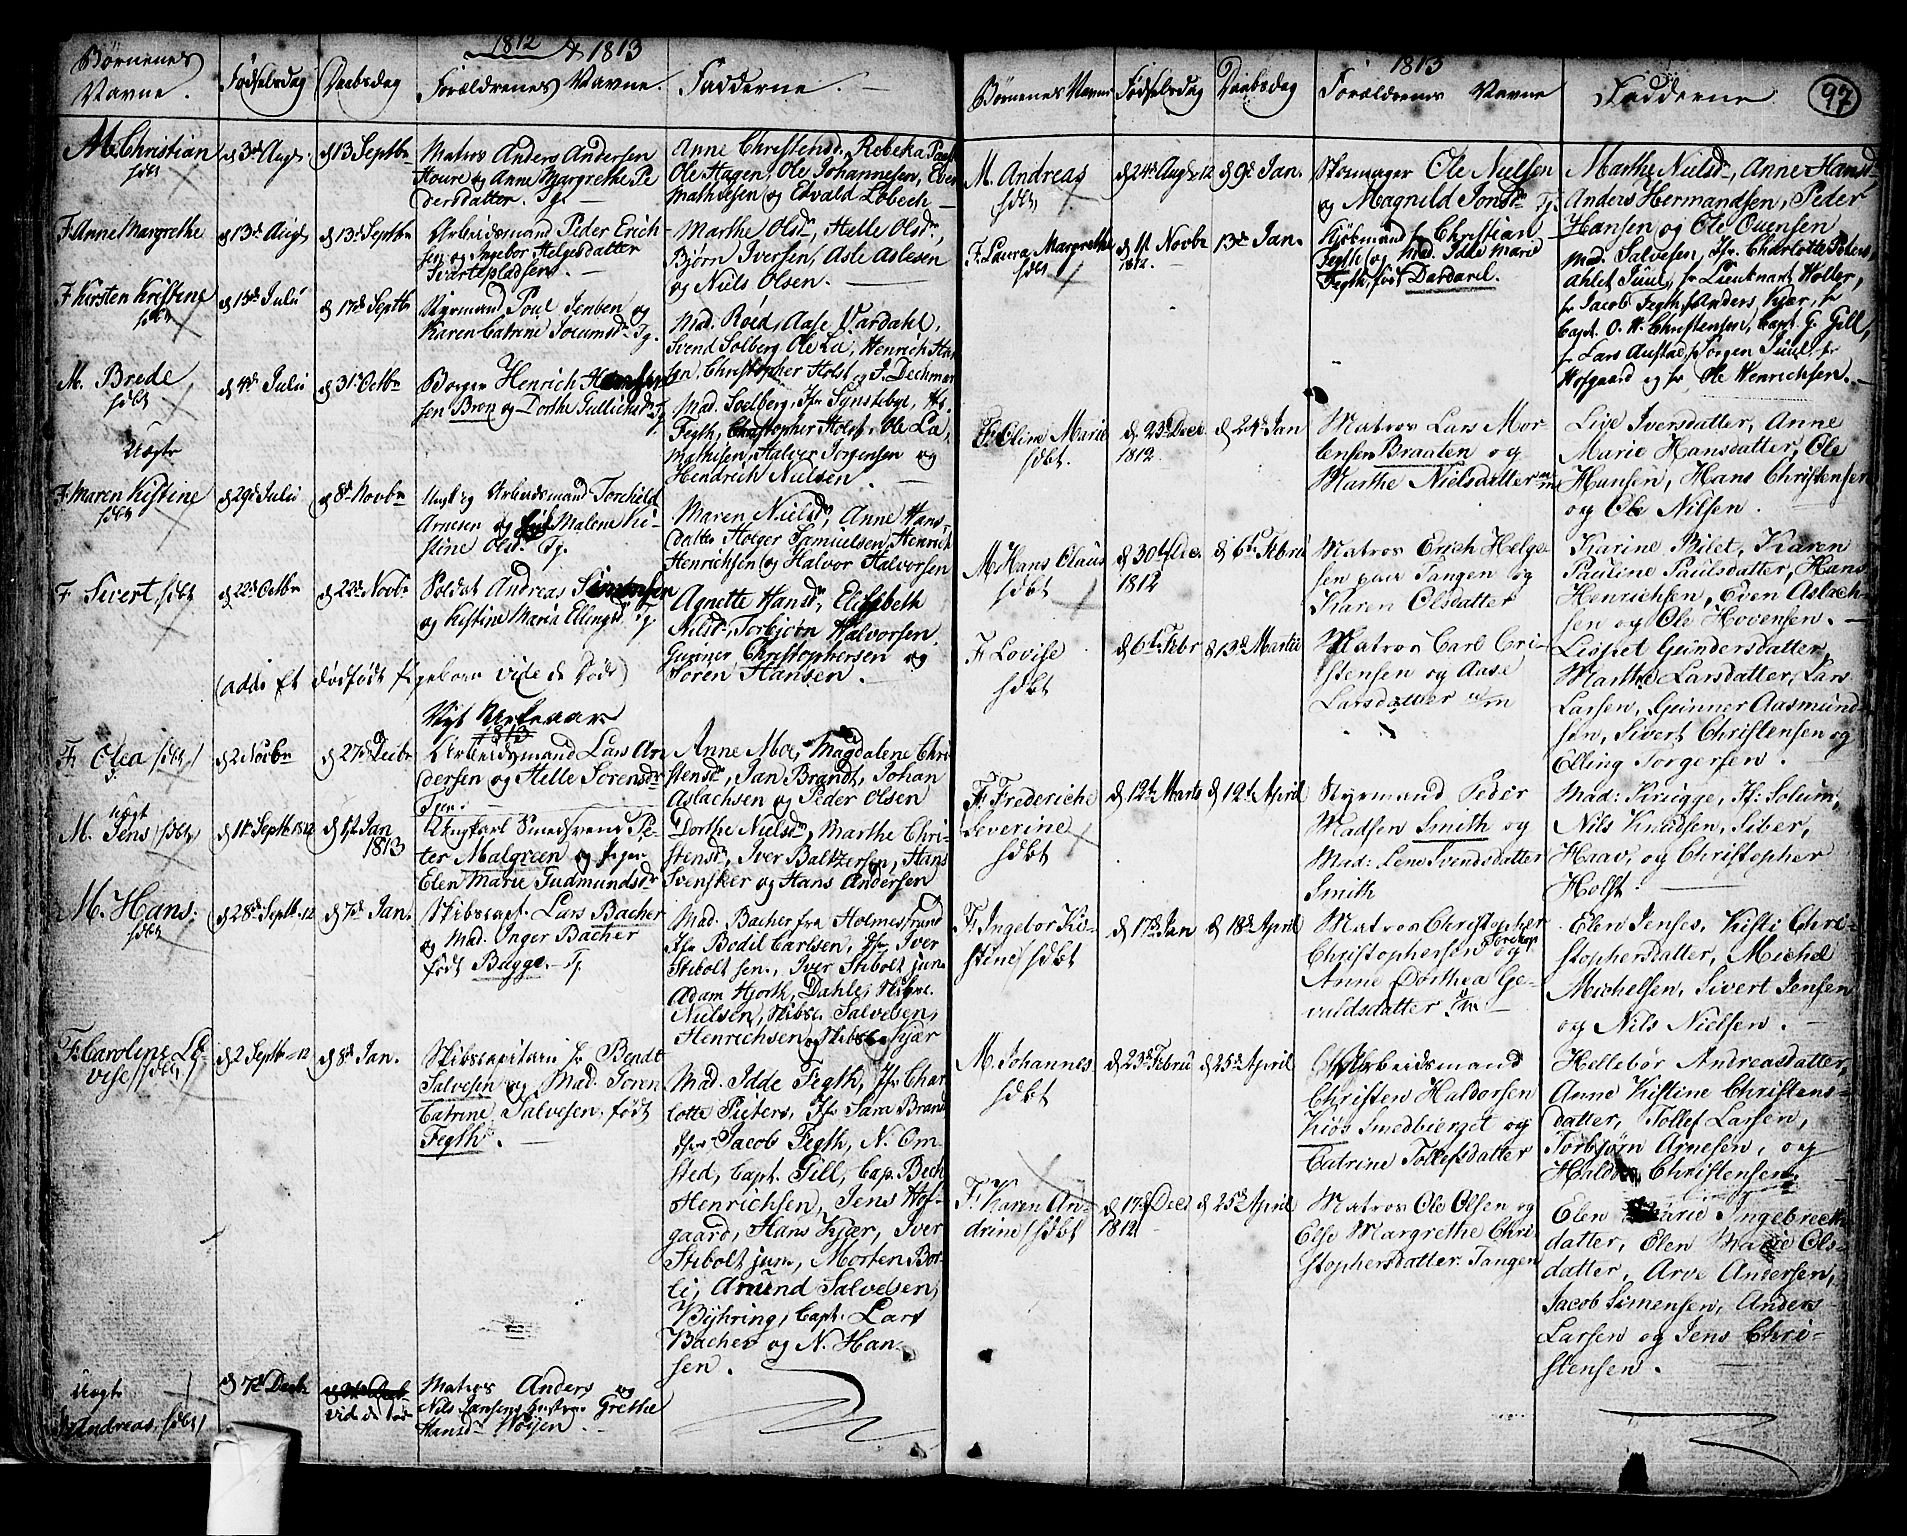 1812 & 1813
Børnenes Navne.
Fødselsdag
Daabsdag
Forældrenes Navne.
Fadderne.
M. Christian
hbt
d 3d Aug.
d 13 Septbr
Matros Anders Andersen
Houre og Anne Margrethe Pe
dersdatter. Tg.
Anne Christensd., Rebeka
Ole Hagen, Ole Johannesen,
Mathiesen og Edvald Lobech
F Anne Margrethe
d 13d Aug
d 13d Septbr
Arbeidsmand Peder Erich
sen og Ingebor Helgesdatter
Svartepladsen.
Marthe Olsdr, Helle Olsdr,
Bjørn Iversen, Asle Aslesen
og Niels Olsen.
F Kirsten Kristine
hbt
d 15d Julii
d 17de Septbr
Styrmand Poul Jensen og
Karen Catrine Jocumsdr Tg.
Mad. Roed, Aase Vardahl,
Svend Solberg, Ole La, Henrich Han
sen, Christopher Holst og J. Dechman
M. Brede
hbt
d 4d Julii
d 31 Octbr
Borger Henrich
sen Bron og Dorthe Gullichsdr Tg
Mad. Soelberg, Jfr Synsteby,
Fegth, Christopher Holst, Ole La,
Mathisen, Halvor Jorgensen og
Hendrich Nielsen.
Uægte
F Maren Kistine
hbt
d 29d Julii
d 8d Novbr
Ungk og Arbeidsmand Torchild
Arnesen og Malene Ki-
stine Olsdr Tg.
Maren Nielsdr, Anne Hans-
datter Holger Samuelsen, Henrich
Henrichsen og Halvor Halvorsen
F Sivert hbt
d 22d Octbr
d 22d Novbr
Soldat Andreas Simonsen
og Kistine Maria Ellingsd. Tg.
Agnette Hansdr, Elisabeth
Nilsdr, Torbjørn Halvorsen
Gunner Christophersen og
Soren Hansen.
(addi Et dødfødt F. geborn vide de Døde)
Nyt Kirkeaar
1813
F. Olea hbt
d 2 Novbr
d 27d Decbr
Arbeidsmand Lars An
dersen og Helle Sørensdr
Tgn.
Anne Moe, Magdalene Chri
stensdr, Jan Brandt, Johan
Aslachsen og Peder Olsen
Uægt
M. Jens hbt
d 11 Septbr 1812
d 1st Jan
1813
Ungkarl Smedsvend Pe-
ter Malgreen og Pigen
Elen Marie Gudmundsdr
Dorthe Nielsdr, Marthe Chri-
stensdr, Iver Baltzersen, Hans
Svensker og Hans Andersen
M. Hans.
hbt
d 28d Septbr 12
d 7d Jan.
Skibscapt. Lars Bacher
og Mad. Inger Bacher
født Bagge. Tg.
Mad. Bacher fra Holmestrand
Jfr Bodil Carlsen, Hr Iver
Stibolt sen., Iver Stibolt jun.
Adam Hjorth, Dahle,
Nielsen, Skibsc. Salvesen,
Henrichsen og Skibsc Kjær
F. Caroline Lo-
vise hbt
d 2 Septbr 12
d 8d Jan.
Skibscapitain hr Bendt
Salvesen og Mad. Soren
Catrine Salvesen, født
Fegth.
Mad. Idde Fegth, Jfr Char
lotte Pieters, Jfr Sara Brand
Hr Jacob Fegth, N. Om
sted, Capt. Gill, Cap. Bech
Henrichsen, Jens Hof-
gaard, Hans Kjær, Iver
Stibolt jun, Morten Bor-
li, Amund Salvesen,
Byhring, Capt. Lars
Bacher og N. Han-
sen.
Uægte
Andreas hbt
d 7d Decbr
vide de Døde
Matros Anders
Nils Jansens hustru Grethe
Hansdr Wøyen.
1813
97
Børnenes Navne
Fødselsdag
Daabsdag
Forældrenes Navne
Fadderne
M. Andreas
hbt
d 24d Aug 12
d 9d Jan.
Skomager Ole Nielsen
og Magnild Jonsdr Tg.
Marthe Nielsdr, Anne Hansd
Anders Hermandsen, Peder
Hansen og Ole Ouensen
F. Laura Margrethe
hbt
d 1st Novbr
1812.
13d Jan.
Kjøbmand hr Christian
Fegth og Mad. Idde Marie
Fegth, født Dardarel.
Mad. Salvesen, Jfr. Charlotte Peters,
Ahlet Juul, hr Lieutnant Holter,
hr Jacob Fegth, hr Anders Kjær, hr
Capt. O. H. Christensen, Capt. G. Gill,
hr Lars Austad, Jorgen Juul, hr
Hofgaard og hr Ole Henrichsen.
F. Eline Marie
hbt.
d 23d Decr
1812
d 24d Jan
Matros Lars Mor-
tensen Braaten og
Marthe Nielsdatter
Live Iversdatter, Anne
Marie Hansdatter, Ole
Hansen, Hans Christensen
og Ole Nilsen.
M. Hans Claus
hbt
d 30d Dec.
1812
d 6te Febru
Matros Erich Helge
sen paa Tangen og
Karen Olsdatter
Karine Bilet, Karen
Pauline Paulsdatter, Hans
Henrichsen, Even Aslach-
sen og Ole Hovensen.
F. Lovise
hbt
d 6te Febr
d 13d Martii
Matros Carl Cri-
stensen og Aase
Larsdatter
Lispet Gundersdatter,
Marthe Larsdatter, Lars
Larsen, Gunner Aasmund-
søn, Sivert Christensen og
Elling Torgersen.
F. Frederiche
Severine
hbt
d 12te Marts
d 12te April
Styrmand Peder
Madsen Smith og
Mad: Lene Svendsdatter
Smith
Mad: Krugge, Jfr: Solum,
Nils Knudsen, Siver,
Haav, og Christopher
Holst.
F. Ingebor Ki-
stine hbt
d 17de Jan
d 18de April
Matros Christopher
Christophersen og
Anne Dorthea Ge-
vuldsdatter
Elen Jenses, Kisti Chri-
stophersdatter, Michel
Michelsen, Sivert Jensen
og Nils Nielsen.
M. Johannes
hbt
d 23de Febru
d 25de April
Arbeidsmand
Christen Haldorsen
Kiøs Smedbierget og
Catrine Tollefsdatter
Hellebør Andreasdatter
Anne Kistine Christens-
datter, Tollef Larsen,
Torbjørn Arnesen, og
Haldor Christensen.
F. Karen An-
drine hbt
d 17de Decr
1812
d 25de April
Matros Ole Olsen og
Else Margrethe Chri
stophersdatter Tangen
Elen Marie Ingebrecht-
datter, Elen Marie Ols-
datter, Arve Andersen,
Jacob Simensen, Anders
Larsen og Jens Chri-
stensen.